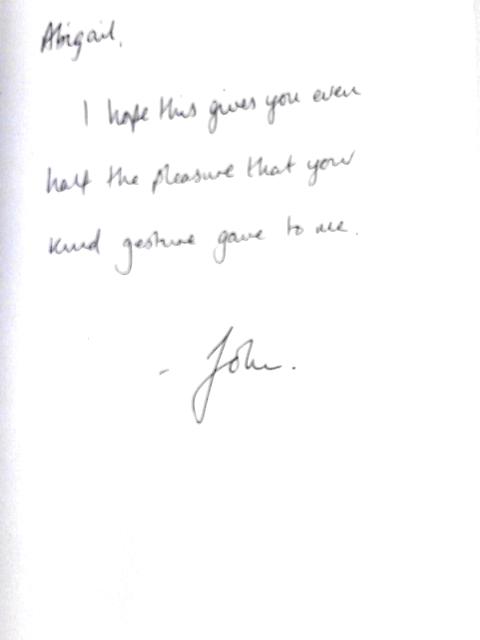 Abigail,
I hope this gives you even
half the pleasure that your
kind gesture gave to me.
- John.